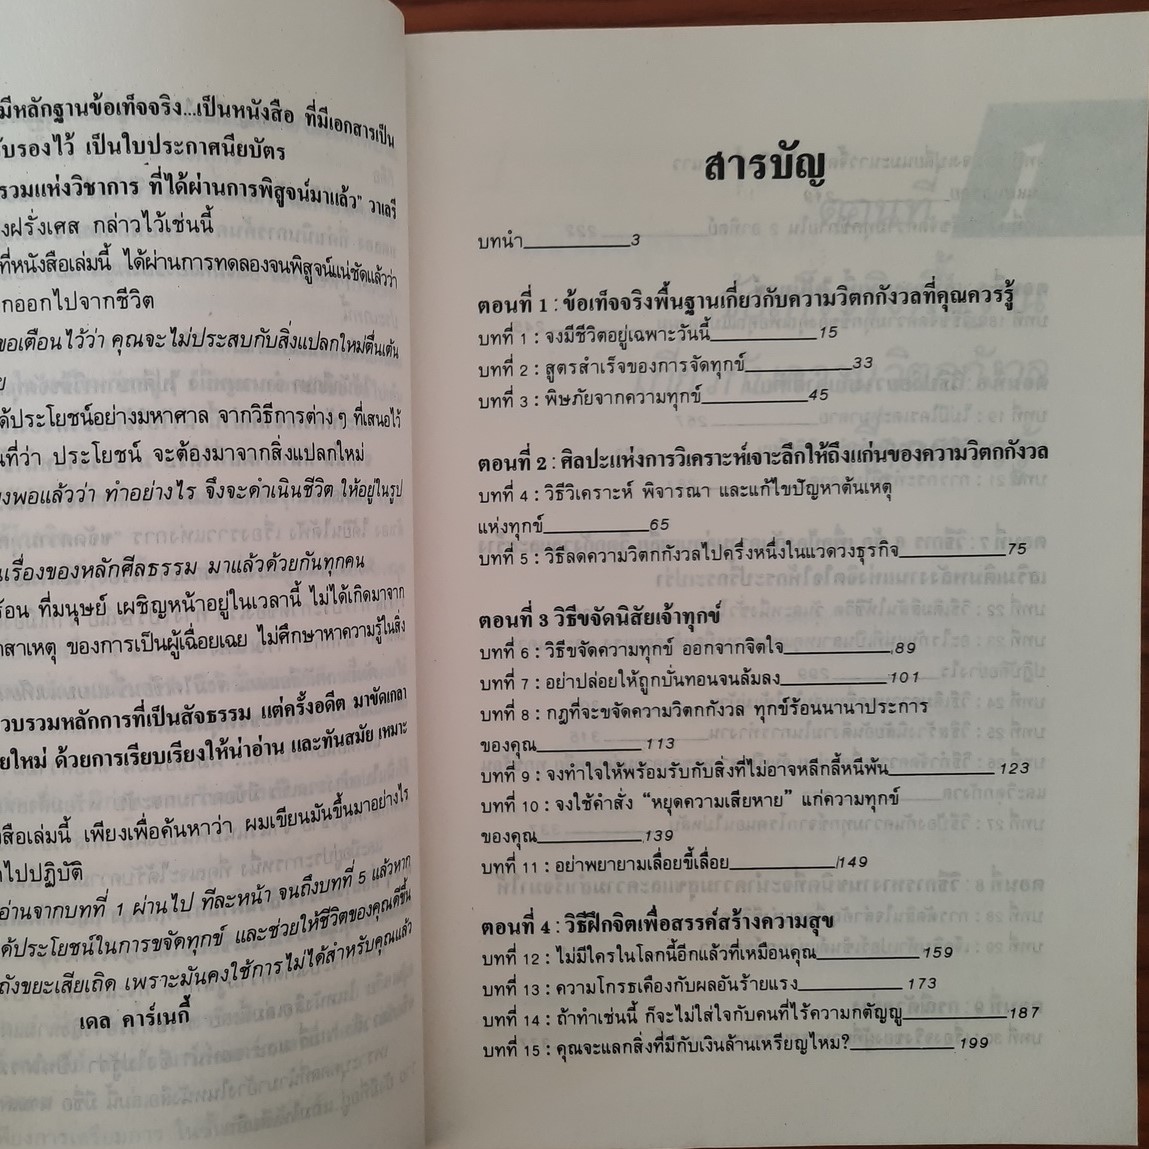 มีหลักฐานข้อเท็จจริง...เป็นหนังสือ ที่มีเอกสารเป็น
รับรองไว้ เป็นใบประกาศนียบัตร
รวมแห่งวิชาการ ที่ได้ผ่านการพิสูจน์มาแล้ว" วาเลรี
งฝรั่งเศส กล่าวไว้เช่นนี้
ที่หนังสือเล่มนี้ ได้ผ่านการทดลองจนพิสูจน์แน่ชัดแล้วว่า
กออกไปจากชีวิต
ขอเตือนไว้ว่า คุณจะไม่ประสบกับสิ่งแปลกใหม่ตื่นเต้น
ย
ด้ประโยชน์อย่างมหาศาล จากวิธีการต่าง ๆ ที่เสนอไว้
นที่ว่า ประโยชน์ จะต้องมาจากสิ่งแปลกใหม่
งพอแล้วว่า ทำอย่างไร จึงจะดำเนินชีวิต ให้อยู่ในรูป
นเรื่องของหลักศีลธรรม มาแล้วด้วยกันทุกคน
ร้อน ที่มนุษย์ เผชิญหน้าอยู่ในเวลานี้ ไม่ได้เกิดมาจาก
กสาเหตุ ของการเป็นผู้เฉื่อยเฉย ไม่ศึกษาหาความรู้ในสิ่ง
วบรวมหลักการที่เป็นสัจธรรม แต่ครั้งอดีต มาขัดเกลา
ยใหม่ ด้วยการเรียบเรียงให้น่าอ่าน และทันสมัย เหมาะ
งสือเล่มนี้ เพียงเพื่อค้นหาว่า ผมเขียนมันขึ้นมาอย่างไร
ไปปฏิบัติ
อ่านจากบทที่ 1 ผ่านไป ทีละหน้า จนถึงบทที่ 5 แล้วหาก
ด้ประโยชน์ในการขจัดทุกข์ และช่วยให้ชีวิตของคุณดีขึ้น
ถังขยะเสียเถิด เพราะมันคงใช้การไม่ได้สำหรับคุณแล้ว
เดล คาร์เนกี้
สารบัญ
บทนำ__________3
ตอนที่ 1 : ข้อเท็จจริงพื้นฐานเกี่ยวกับความวิตกกังวลที่คุณควรรู้
บทที่ 1 : จงมีชีวิตอยู่เฉพาะวันนี้__________15
บทที่ 2 : สูตรสำเร็จของการจัดทุกข์__________33
บทที่ 3 : พิษภัยจากความทุกข์__________45
ตอนที่ 2 : ศิลปะแห่งการวิเคราะห์เจาะลึกให้ถึงแก่นของความวิตกกังวล
บทที่ 4 : วิธีวิเคราะห์ พิจารณา และแก้ไขปัญหาต้นเหตุ
แห่งทุกข์__________65
บทที่ 5 : วิธีลดความวิตกกังวลไปครึ่งหนึ่งในแวดวงธุรกิจ__________75
ตอนที่ 3 วิธีขจัดนิสัยเจ้าทุกข์
บทที่ 6 : วิธีขจัดความทุกข์ ออกจากจิตใจ__________89
บทที่ 7 : อย่าปล่อยให้ถูกบั่นทอนจนล้มลง__________101
บทที่ 8 : กฎที่จะขจัดความวิตกกังวล ทุกข์ร้อนนานาประการ
ของคุณ__________113
บทที่ 9 : จงทำใจให้พร้อมรับกับสิ่งที่ไม่อาจหลีกลี้หนีพ้น__________123
บทที่ 10 : จงใช้คำสั่ง "หยุดความเสียหาย" แก่ความทุกข์
ของคุณ__________139
บทที่ 11 : อย่าพยายามเลื่อยขี้เลื่อย__________149
ตอนที่ 4 : วิธีฝึกจิตเพื่อสรรค์สร้างความสุข
บทที่ 12 : ไม่มีใครในโลกนี้อีกแล้วที่เหมือนคุณ__________159
บทที่ 13 : ความโกรธเคืองกับผลอันร้ายแรง__________173
บทที่ 14 : ถ้าทำเช่นนี้ ก็จะไม่ใส่ใจกับคนที่ไร้ความกตัญญู__________187
บทที่ 15 : คุณจะแลกสิ่งที่มีกับเงินล้านเหรียญไหม?__________199